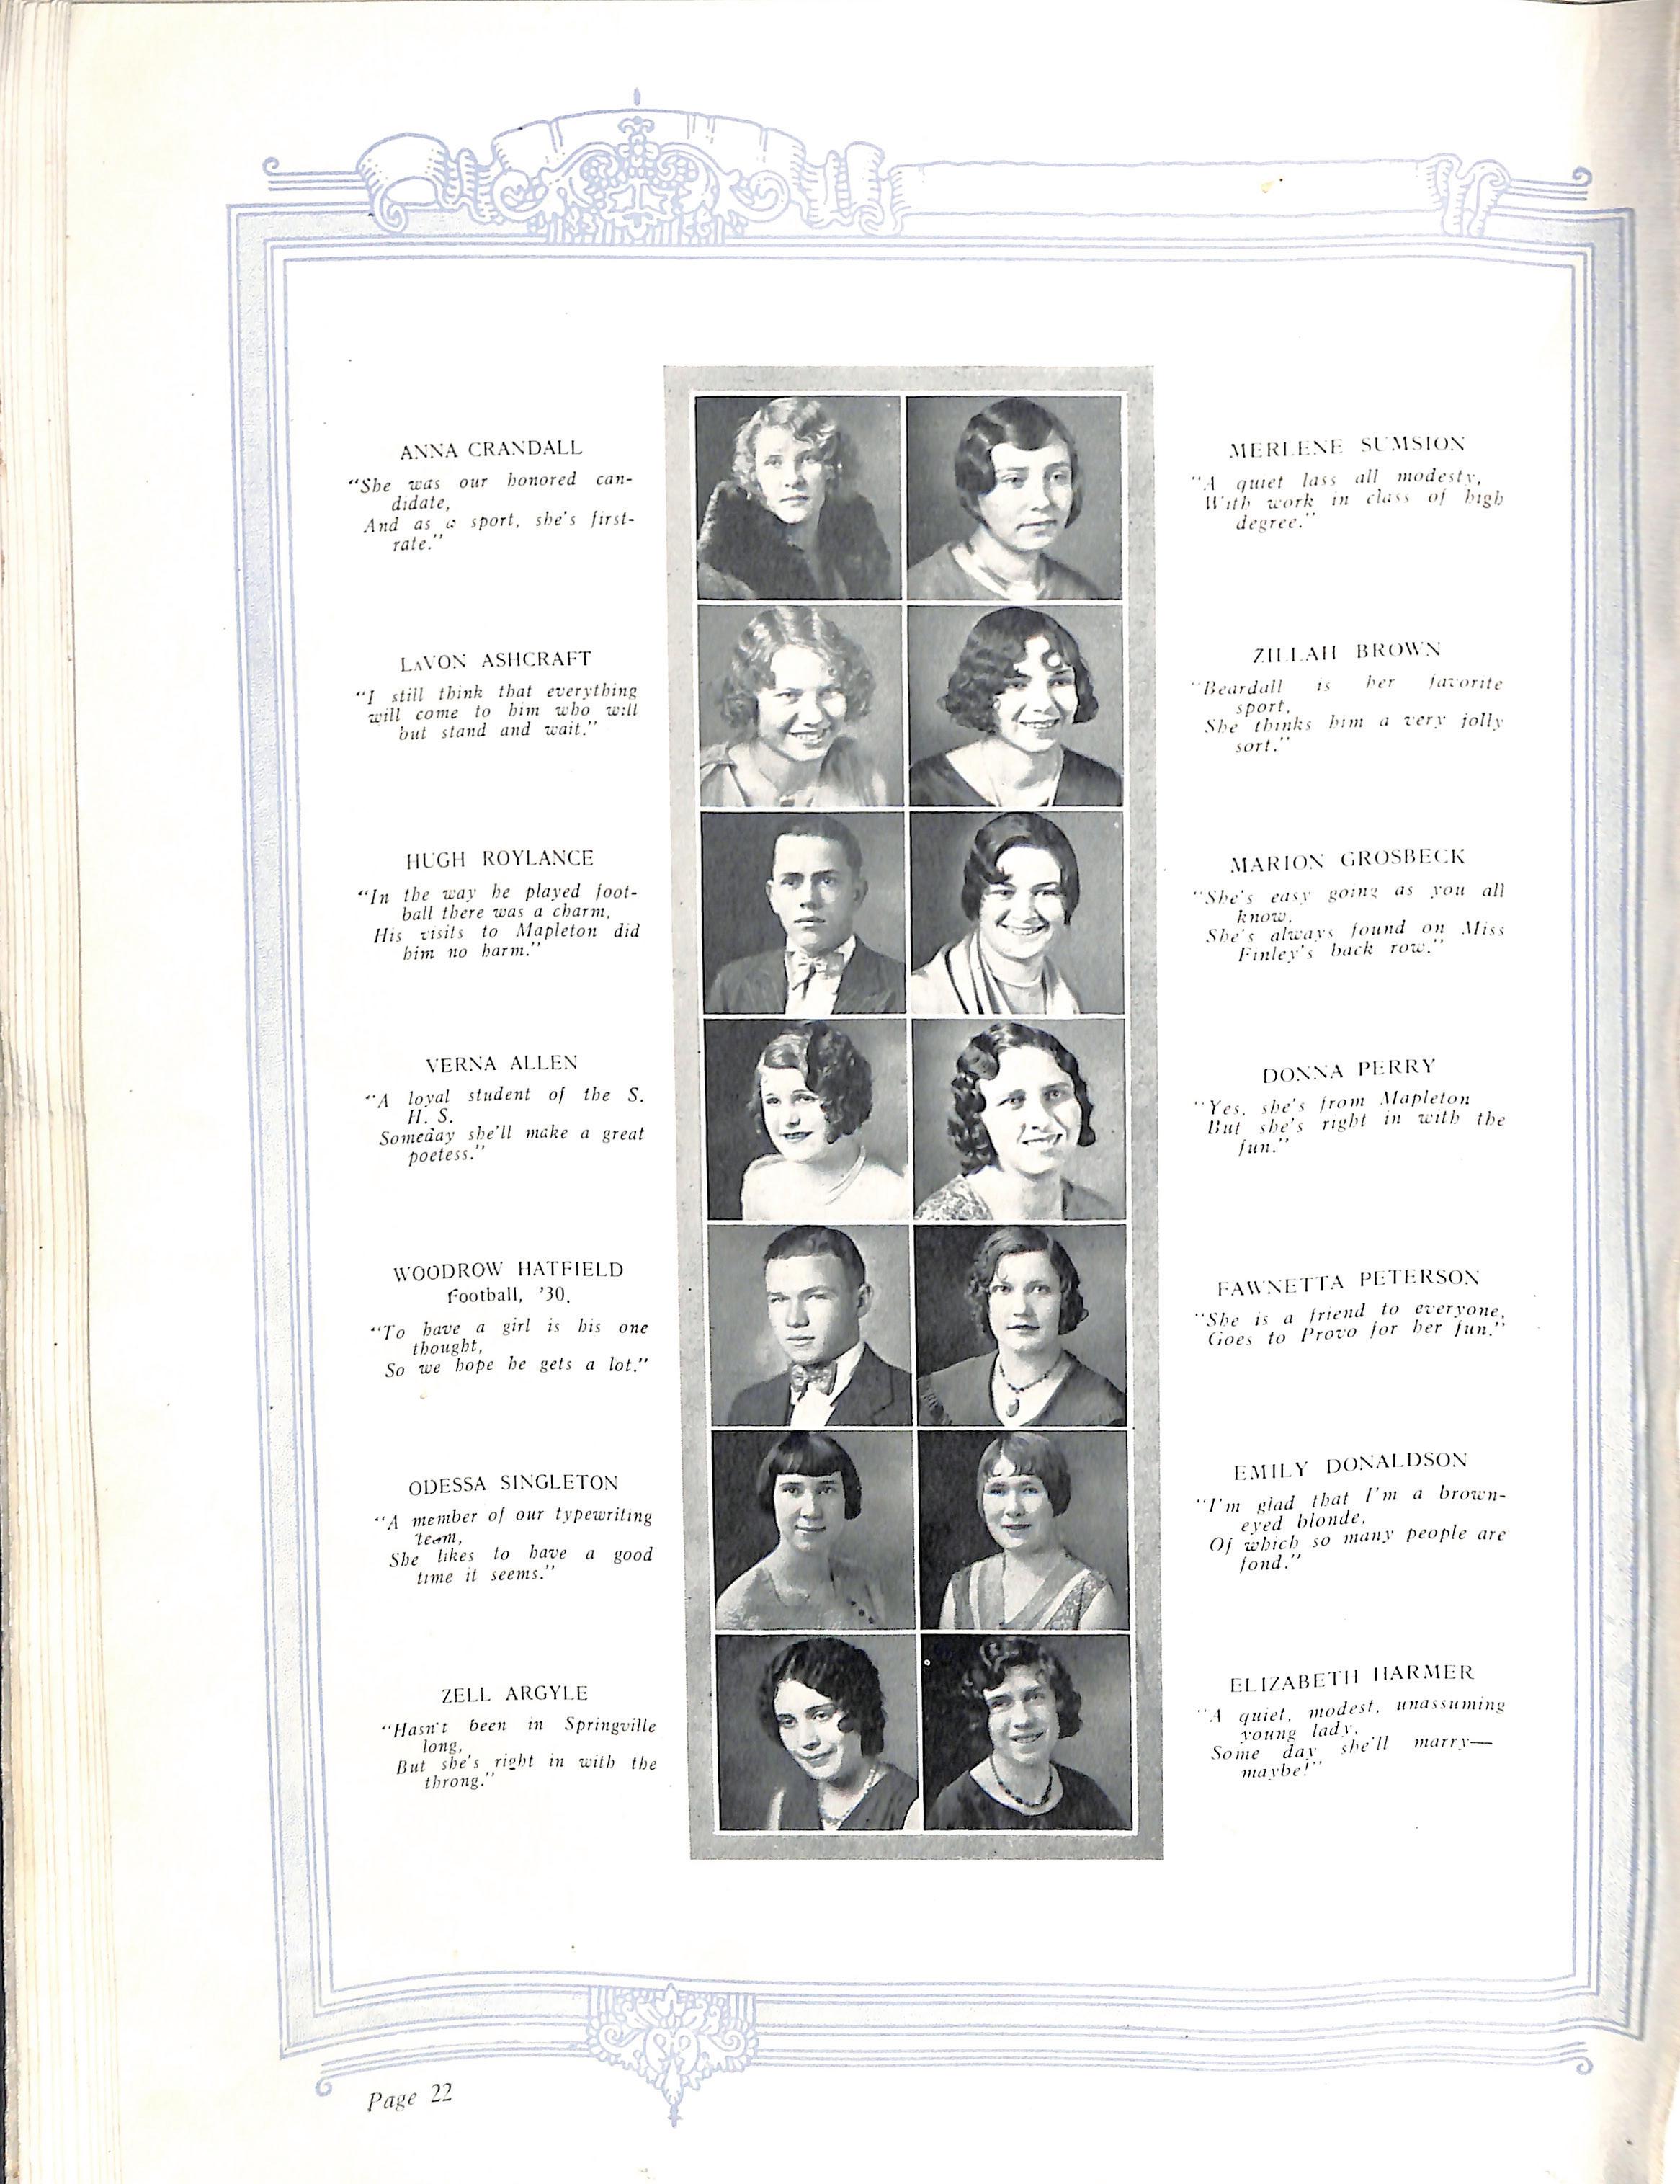 ANNA CRANDALL
"She was our honored can-
didate,
And as a sport, she's first-
rate."
LAVON ASHCRAFT
"I still think that everything
will come to him who will
but stand and wait."
HUGH ROYLANCE
"In the way he played foot-
ball there was a charm,
His visits to Mapleton did
him no harm."
VERNA ALLEN
"A loyal student of the S.
H. S.
Someday she'll make a great
poetess."
WOODROW HATFIELD
Football, '30.
"To have a girl is his one
thought,
So we hope he gets a lot."
ODESSA SINGLETON
"A member of our typewriting
team,
She likes to have a good
time it seems."
ZELL ARGYLE
"Hasn't been in Springville
long,
But she's right in with the
throng."
MERLENE SUMSION
"A quiet lass all modesty,
With work in class of high
degree."
ZILLAH BROWN
"Beardall is her favorite
sport,
She thinks him a very jolly
sort."
MARION GROSBECK
"She's easy going as you all
know,
She's always found on Miss
Finley's back row."
DONNA PERRY
"Yes, she's from Mapleton
But she's right in with the
fun."
FAWNETTA PETERSON
"She is a friend to everyone,
Goes to Provo for her fun."
EMILY DONALDSON
"I'm glad that I'm a brown-
eyed blonde,
Of which so many people are
fond."
ELIZABETH HARMER
"A quiet, modest, unassuming
young lady,
Some day she'll marry—
maybe!"
Page 22